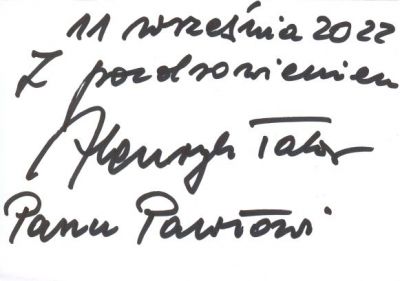 11 września 2022
Z pozdrowieniem
Henryk Talar
Panu Pawłowi